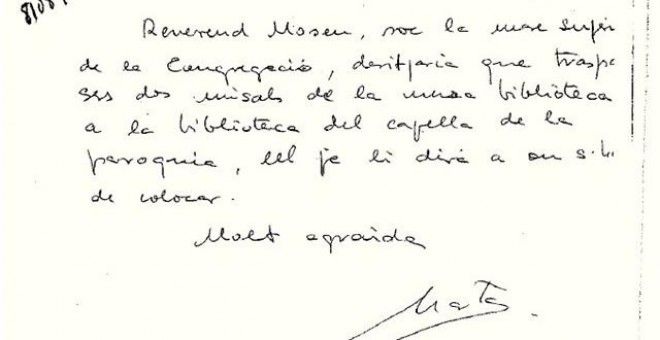 Reverend Mosen, soc la mare super
de la Congregació, desitjaria que traspa
ses dos misals de la meva biblioteca
a la biblioteca del capella de la
paroquia, ell ja li dirà a on s.h.
de colocar.
Molt agraïda
Marta